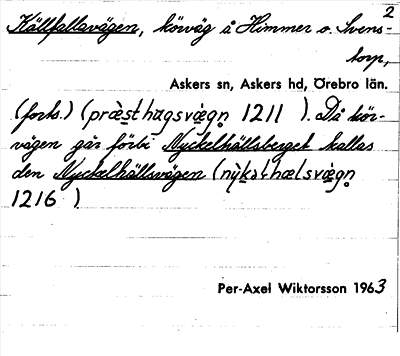 2
Källfallavägen, körväg å Himmer o. Svens-
torp,
Askers sn, Askers hd, Örebro län.
(forts.) (præ̀sthagsvæ̨gn̥ 1211 ). Då kör-
vägen går förbi Nyckelhällsberget kallas
den Nyckelhällsvägen (nỳkəlhælsvæ̨gn̥
1216 )
Per-Axel Wiktorsson 1963